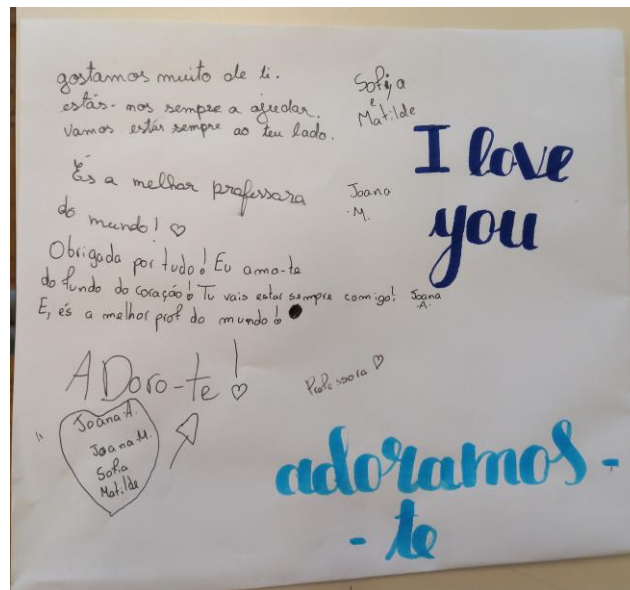 gostamos muito de ti.
estás-nos sempre a ajudar.
vamos estar sempre ao teu lado.
Sofia
e
Matilde
I love
you
És a melhor professora
do mundo! ♡
Joana
M.
Obrigada por tudo! Eu amo-te
do fundo do coração! Tu vais estar sempre comigo!
E, és a melhor prof do mundo!
Joana
A.
ADoro-te!
Professora ♡
Joana A.
Joana M.
Sofia
Matilde
adoramos-
-te